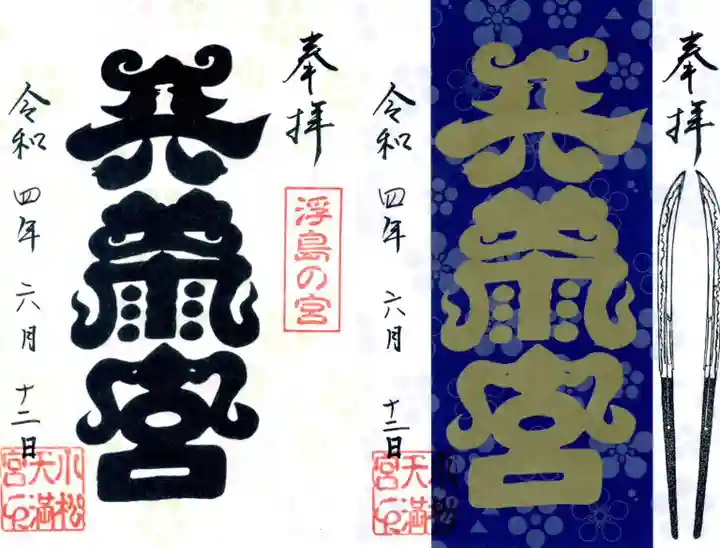 奉拝
浮島の宮
天満宮
令和四年六月十二日
小松
天満
宮
奉拝
天満宮
令和四年六月十二日
小松
天満
宮